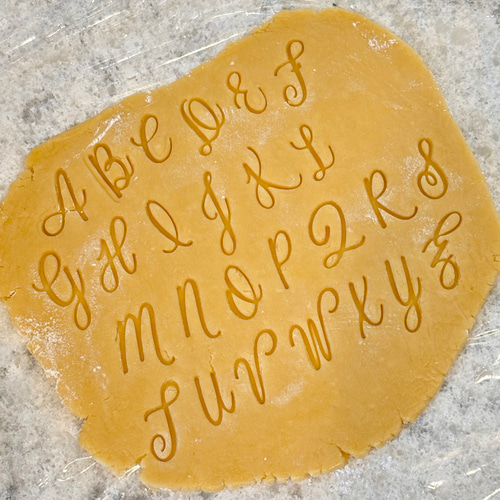 A B C D E F
G H I J K L
M N O P Q R S
T U V W X Y Z